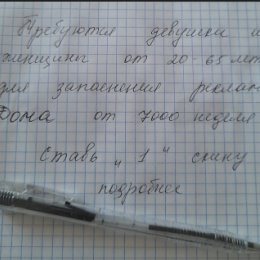 Требуются девушки и
женщины от 20-65 лет
для запоснения реклам
Дома от 7000 неделя
Ставь "1" скину
подробнее